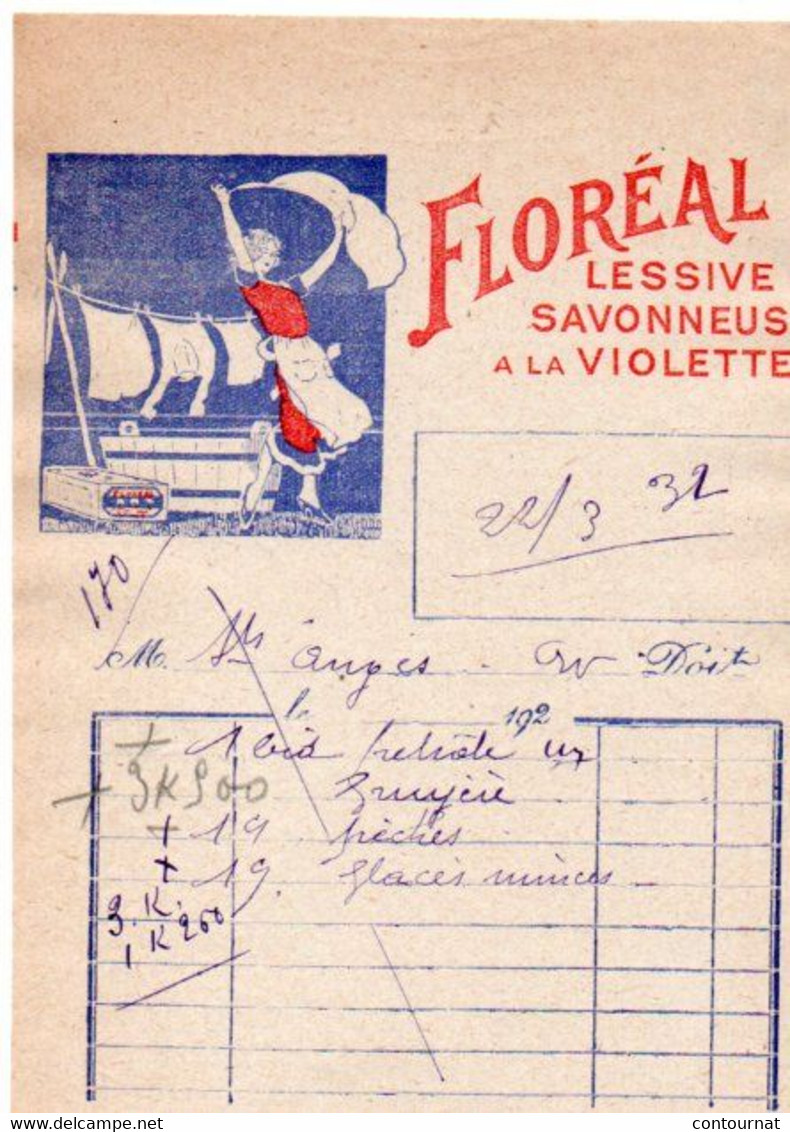 FLORÉAL
LESSIVE
SAVONNEUS
A LA VIOLETTE
22/3 32
170
M. Anges Doit
le 192
+ 1 bid
+ 3K900 Gruyère
+ 19 pêches
+ 19 glaces minces
3.K.
1 K 260
www.delcampe.net
contournat